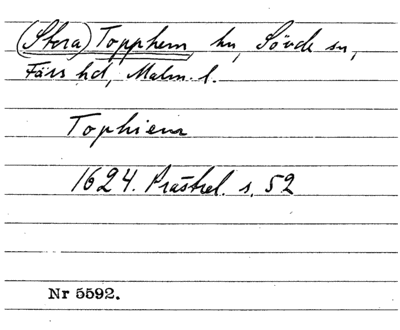 (Stora) Topphem hn, Sövde sn,
Färs hd, Malm. l.
Tophiem
1624. Prästrel. s. 52
Nr 5592.